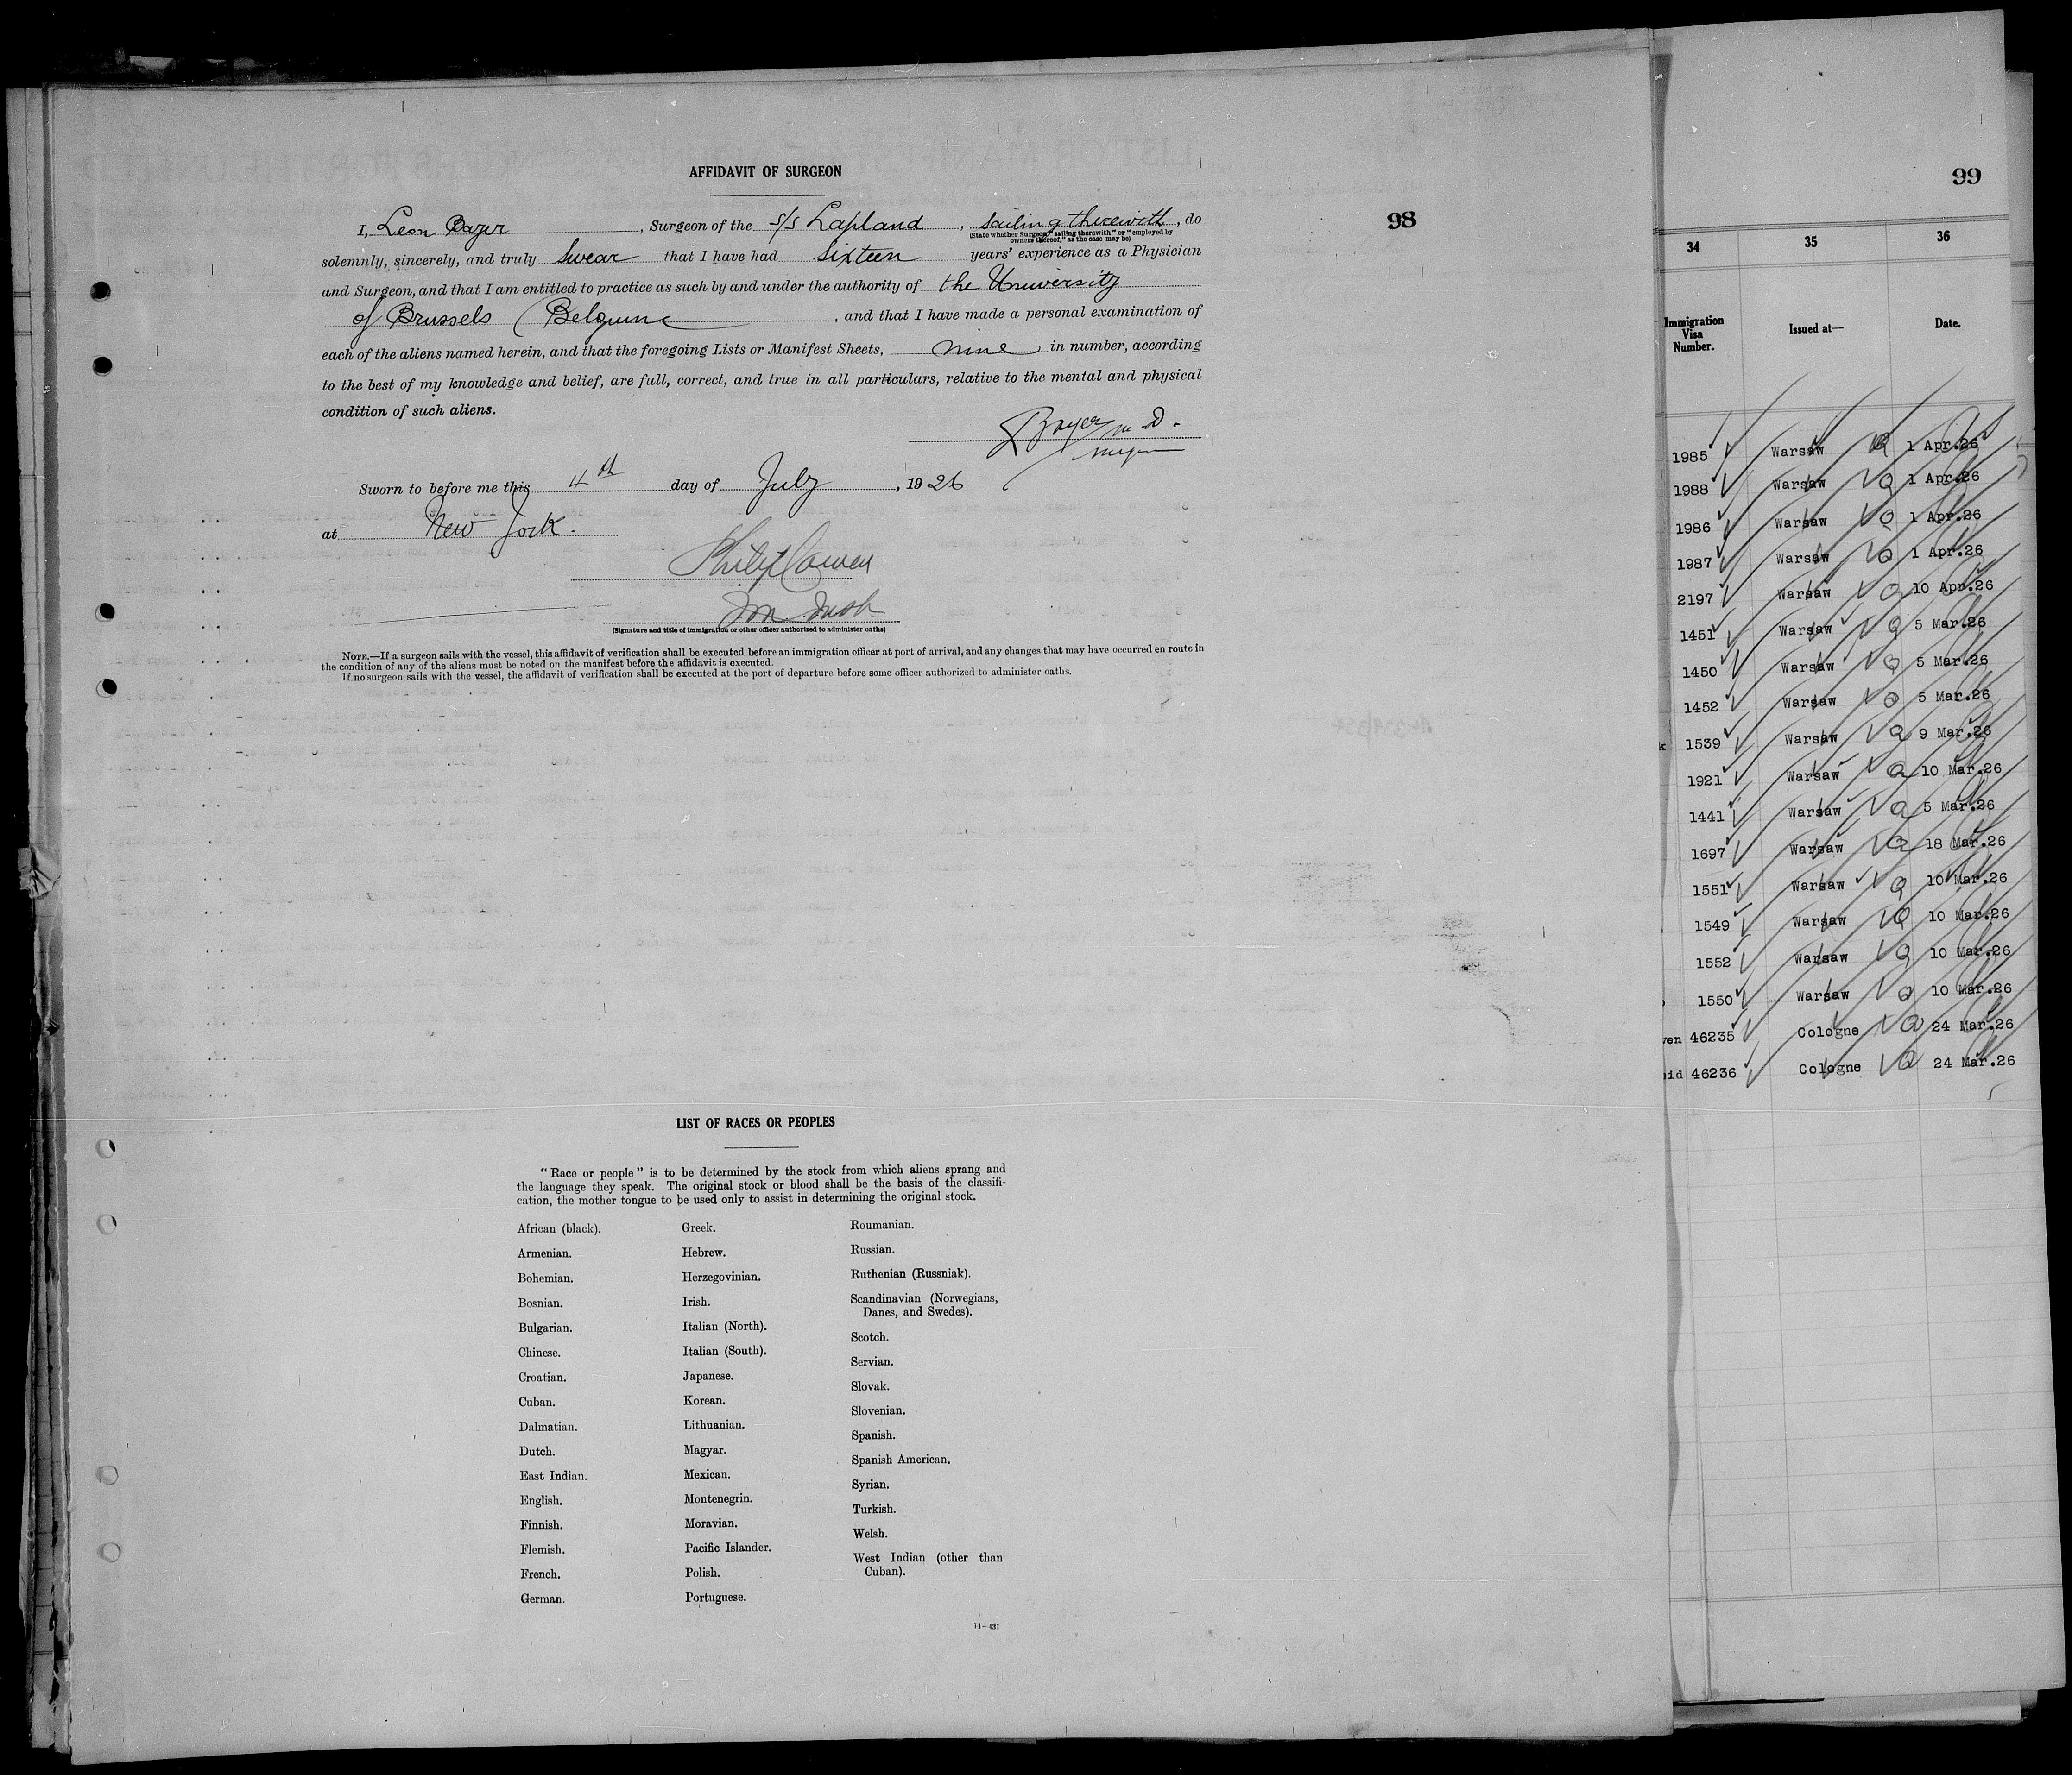 AFFIDAVIT OF SURGEON
I, Leon Bayer, Surgeon of the S/S Lapland, sailing therewith, do
(State whether Surgeon "sailing therewith" or "employed by
owners thereof," as the case may be)
solemnly, sincerely, and truly swear that I have had sixteen years' experience as a Physician
and Surgeon, and that I am entitled to practice as such by and under the authority of the University
of Brussels (Belgium, and that I have made a personal examination of
each of the aliens named herein, and that the foregoing Lists or Manifest Sheets, nine in number, according
to the best of my knowledge and belief, are full, correct, and true in all particulars, relative to the mental and physical
condition of such aliens.
LBayer M.D.
Surgeon
Sworn to before me this 4th day of July, 1926
at New York.
Philip Cowen
Imm Insp
(Signature and title of immigration or other officer authorized to administer oaths)
NOTE.—If a surgeon sails with the vessel, this affidavit of verification shall be executed before an immigration officer at port of arrival, and any changes that may have occurred en route in
the condition of any of the aliens must be noted on the manifest before the affidavit is executed.
If no surgeon sails with the vessel, the affidavit of verification shall be executed at the port of departure before some officer authorized to administer oaths.
98
LIST OF RACES OR PEOPLES
"Race or people" is to be determined by the stock from which aliens sprang and
the language they speak. The original stock or blood shall be the basis of the classifi-
cation, the mother tongue to be used only to assist in determining the original stock.
African (black).
Armenian.
Bohemian.
Bosnian.
Bulgarian.
Chinese.
Croatian.
Cuban.
Dalmatian.
Dutch.
East Indian.
English.
Finnish.
Flemish.
French.
German.
Greek.
Hebrew.
Herzegovinian.
Irish.
Italian (North).
Italian (South).
Japanese.
Korean.
Lithuanian.
Magyar.
Mexican.
Montenegrin.
Moravian.
Pacific Islander.
Polish.
Portuguese.
Roumanian.
Russian.
Ruthenian (Russniak).
Scandinavian (Norwegians,
Danes, and Swedes).
Scotch.
Servian.
Slovak.
Slovenian.
Spanish.
Spanish American.
Syrian.
Turkish.
Welsh.
West Indian (other than
Cuban).
14—431
99
34 35 36
Immigration
Visa
Number.
Issued at—
Date.
1985 Warsaw 1 Apr.26
1988 Warsaw 1 Apr.26
1986 Warsaw 1 Apr.26
1987 Warsaw 1 Apr.26
2197 Warsaw 10 Apr.26
1451 Warsaw 5 Mar.26
1450 Warsaw 5 Mar.26
1452 Warsaw 5 Mar.26
k 1539 Warsaw 9 Mar.26
1921 Warsaw 10 Mar.26
1441 Warsaw 5 Mar.26
1697 Warsaw 18 Mar.26
1551 Warsaw 10 Mar.26
1549 Warsaw 10 Mar.26
1552 Warsaw 10 Mar.26
1550 Warsaw 10 Mar.26
ven 46235 Cologne 24 Mar.26
eid 46236 Cologne 24 Mar.26